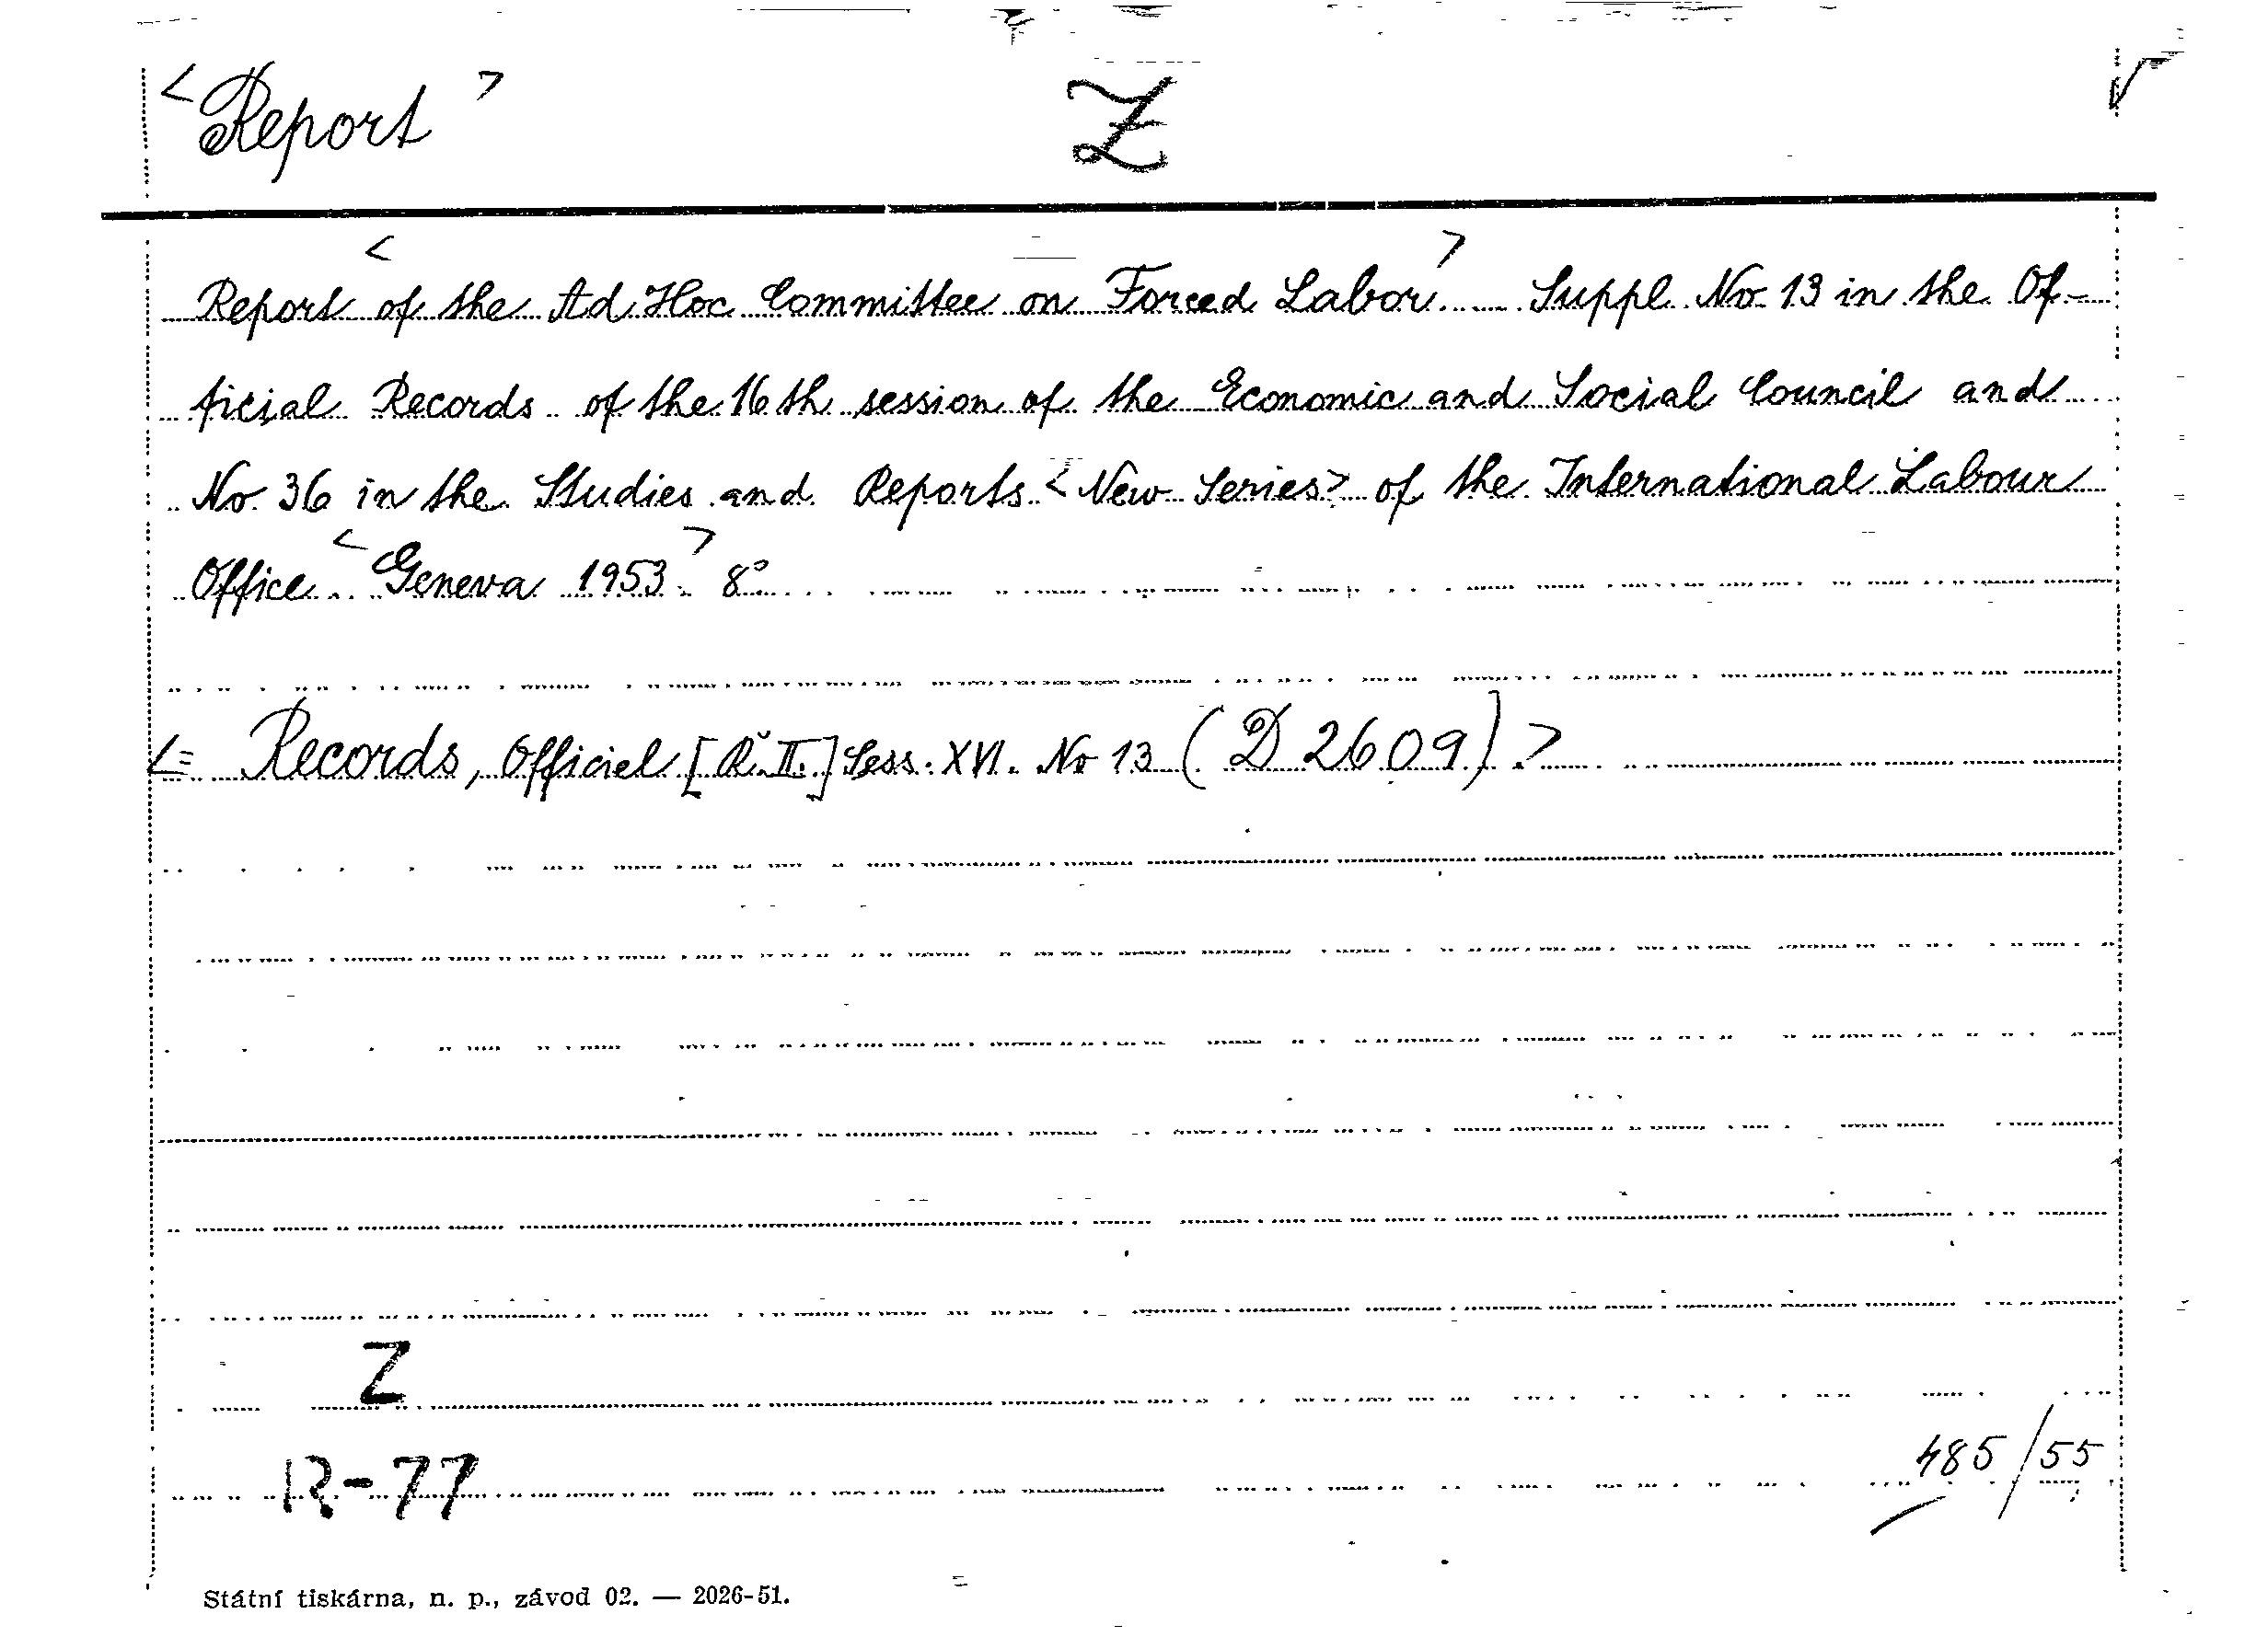 <Report> Z
Report <of the Ad Hoc Committee on Forced Labor.> Suppl. No 13 in the Of-
ficial Records of the 16th session of the Economic and Social Council and
No 36 in the Studies and Reports <New Series> of the International Labour
Office. <Geneva 1953.> 8°
<= Records, Officiel [Ř. II.] Sess. XVI. No 13 (D 2609).>
Z
R-77
485/55
Státní tiskárna, n. p., závod 02. — 2026-51.